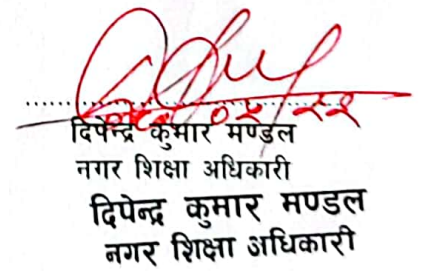 दिपेन्द्र कुमार मण्डल
नगर शिक्षा अधिकारी
दिपेन्द्र कुमार मण्डल
नगर शिक्षा अधिकारी